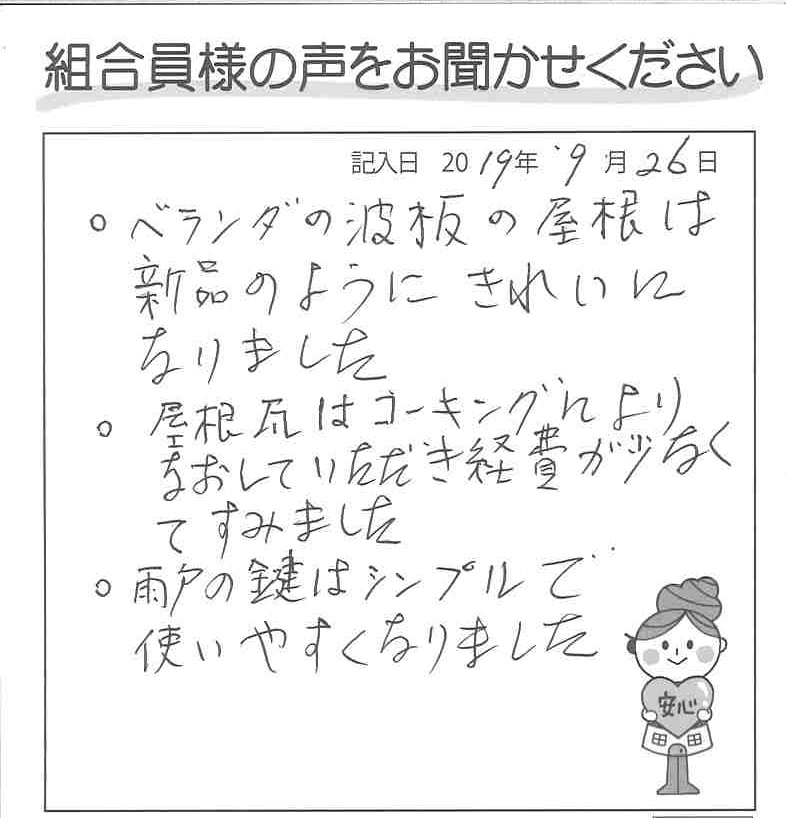 組合員様の声をお聞かせください
記入日 2019年 9月26日
○ ベランダの波板の屋根は
新品のようにきれいに
なりました
○ 屋根瓦はコーキングにより
なおしていただき経費が少なく
てすみました
○ 雨戸の鍵はシンプルで
使いやすくなりました
安心